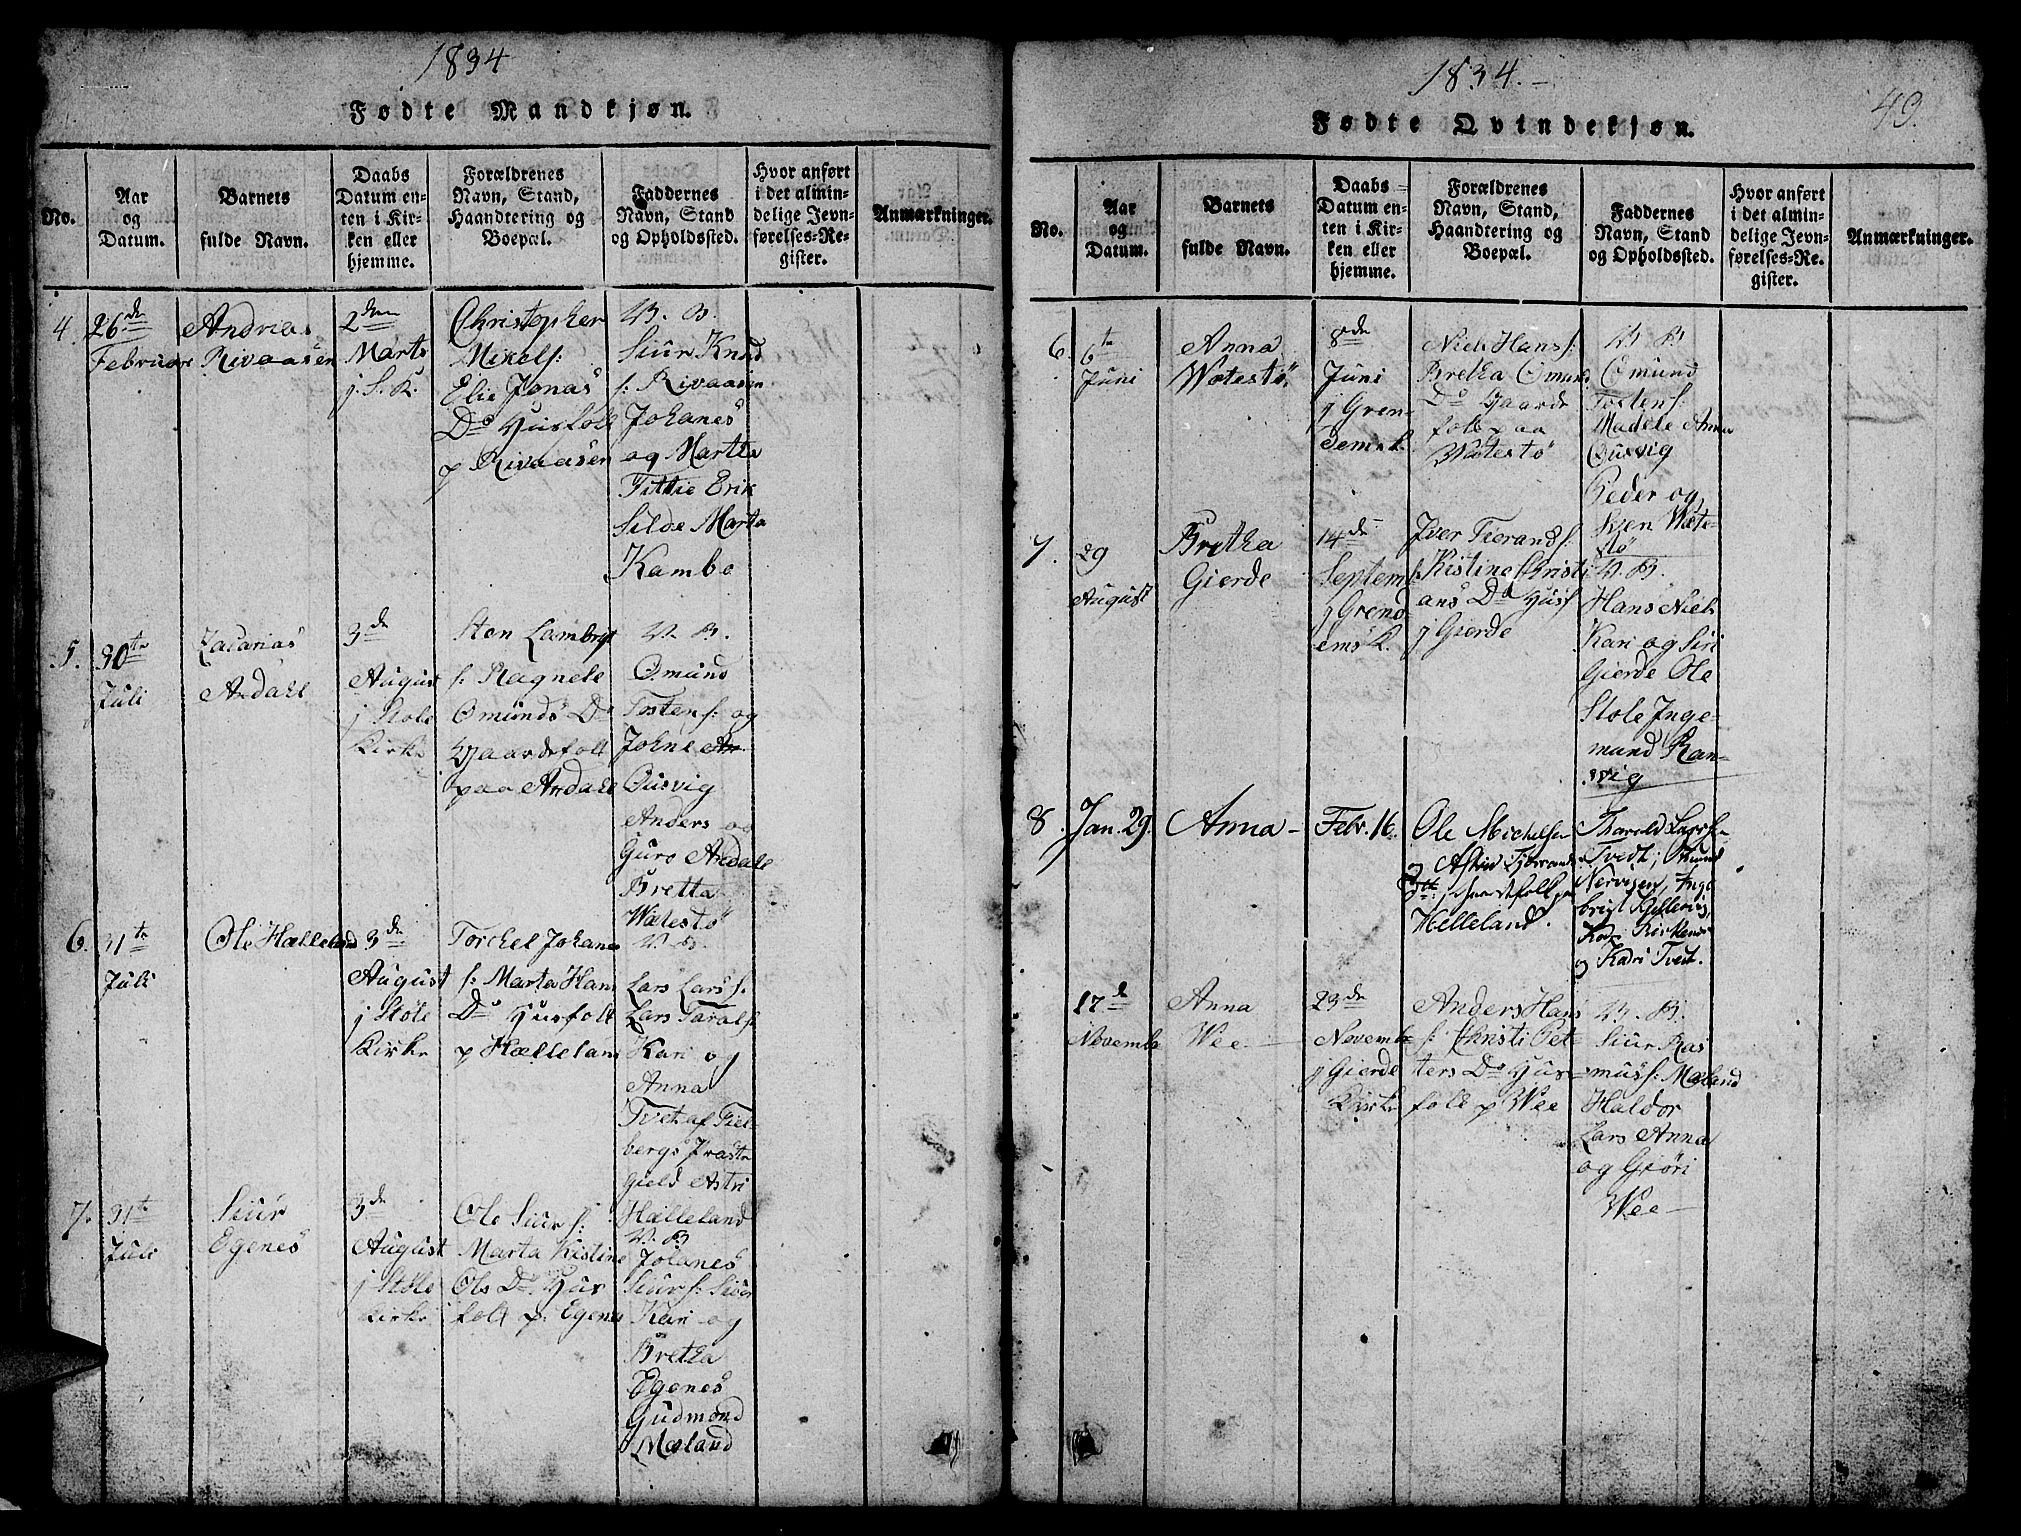 1834
Fødte Mandkjøn.
No.
Aar
og
Datum.
Barnets
fulde Navn.
Daabs
Datum en-
ten i Kir-
ken eller
hjemme.
Forældrenes
Navn, Stand,
Haandtering og
Boepæl.
Faddernes
Navn, Stand
og Opholdssted.
Hvor anført
i det almin-
delige Jevn-
førelses-Re-
gister.
Anmærkninger.
4.
26de
Februar
Andrias
Rivaasen
2den
Marts
j S. K.
Christopher
Mikels:
Elie Jonas
Dr Husfolk
p Rivaasen
V. B.
Siur Knud
s: Rivaasen
Johanes
og Martha
Tittie Erik
Silde Marta
Kambo
5.
30te
Juli
Zacarias
Andahl
3de
August
j Stole
Kirke
Sten Lambrigt
s: Magnele
Omunds Dr
Gaardsfolk
paa Andahl
V. B.
Omund
Tosten s: og
Johne
Ousvig
Anders og
Guro Andale
Bretta
Wætestö
6.
31te
Juli
Ole Hælleland
3de
August
j Stole
Kirke
Torchel Johanes
s: Marta Hans
Dr Husfolk
p Hælleland
V. B.
Lars Lars s:
Lars Taral s:
Kari og
Anna
Tvet af Fiel-
bergs Præste
Gield Astri
Hælleland
7.
31te
Juli
Siur
Egenes
3de
August
j Stole
Kirke
Ole Siur s:
Marta Kistine
Ols Dr. Hus
folk p. Egenes
V. B.
Johanes
Siur s: Siur
Kari og
Bretha
Egenes
Gudmond
Mæland
1834.-
49.
Fødte Qvindekjøn.
No.
Aar
og
Datum.
Barnets
fulde Navn.
Daabs-
Datum en-
ten i Kir-
ken eller
hjemme.
Forældrenes
Navn, Stand,
Haandtering og
Boepæl.
Faddernes
Navn, Stand
og Opholdssted.
Hvor anført
i det almin-
delige Jevn-
førelses-Re-
gister.
Anmærkninger.
6.
6te
Juni
Anna
Wætestö
8de
Juni
j Gren-
demsk.
Niels Hans s:
Bretha Omund
Dr Gaards
folk paa
Wætestö
V. B.
Omund
Tosten s:
Madele Anna
Ousvig
Peder og
Sven Wæte-
stö
7.
29
August
Bretha
Gierde
14de
Septem
j Grend
emsk.
Iver Tierands:
Kistine Christi
ans Dr Husf
j Gierde
V. B.
Hans Niels
Kari og Siri
Gierde Ole
Stole Inge-
mund Ran-
vig
8.
Jan. 29.
Anna-
Febr. 16.
Ole Michelsen
og Astrid Tjerrands
Dtt: Gaardfolk paa
Helleland.
Tharald Larsen
Tvedt,
Nervigen, Inge
brigt Kjellevig,
Kirkenes
og Kadri Tvedt.
17de
November
Anna
Wee-
23de
November
j Gierde
Kirke
Anders Hans
s: Christi Pet-
ters Dr Hus=
folk p Wee
V. B.
Siur Ras
mus s: Mæland
Haldor
Lars Anna
og Giöri
Wee-